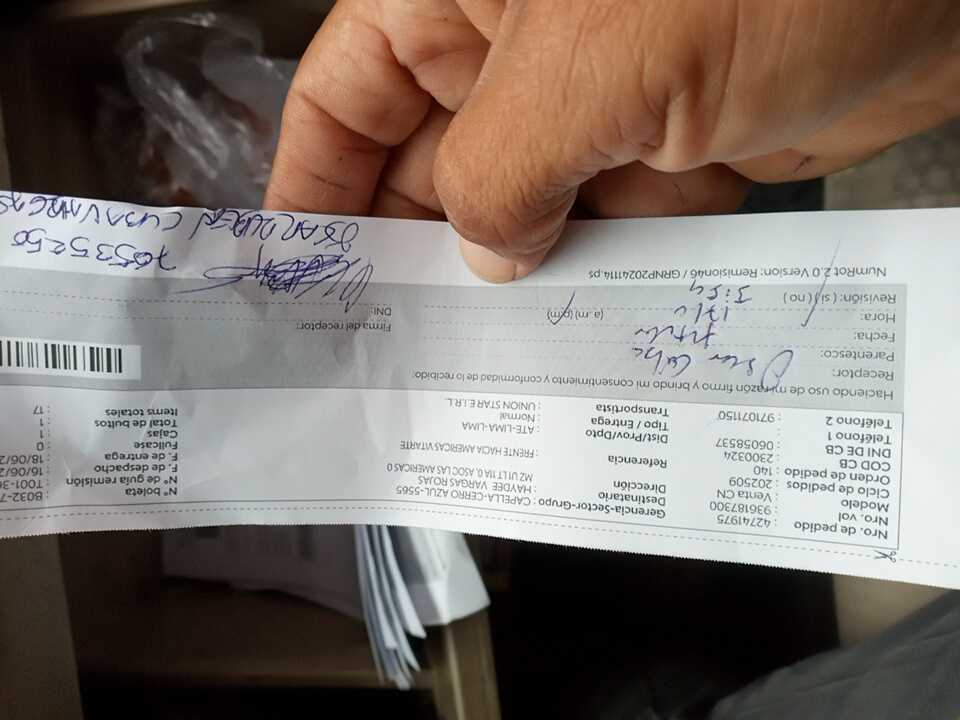 Nro. de pedido : 42741975
Nro. vol : 936187300
Modelo : Venta CN
Ciclo de pedidos : 202509
Orden de pedido : 140
COD CB : 2300924
DNI DE CB : 06058537
Teléfono 1 :
Teléfono 2 : 971071150
Gerencia-Sector-Grupo : CAPELLA-CERRO AZUL-5565
Destinatario : HAYDEE VARGAS ROJAS
Dirección : MZ ULT 11A 0, ASOC LAS AMERICAS 0
Referencia : FRENTE HACIA AMERICAS VITARTE
Dist/Prov/Dpto : ATE-LIMA-LIMA
Tipo / Entrega : Normal
Transportista : UNION STAR E.I.R.L.
N° boleta : B032-7
N° de guía remisión : T001-36
F. de despacho : 16/06/2
F. de entrega : 18/06/2
Fullcase : 0
Cajas : 1
Total de bultos : 1
Items totales : 17
Haciendo uso de mi razón firmo y brindo mi consentimiento y conformidad de lo recibido:
Receptor:
Parentesco:
Fecha:
Hora: (a.m) (p.m)
Revisión: ( si ) ( no )
Firma del receptor:
DNI:
NumRot 2.0 Version: Remision46 / GRNP20241114.ps